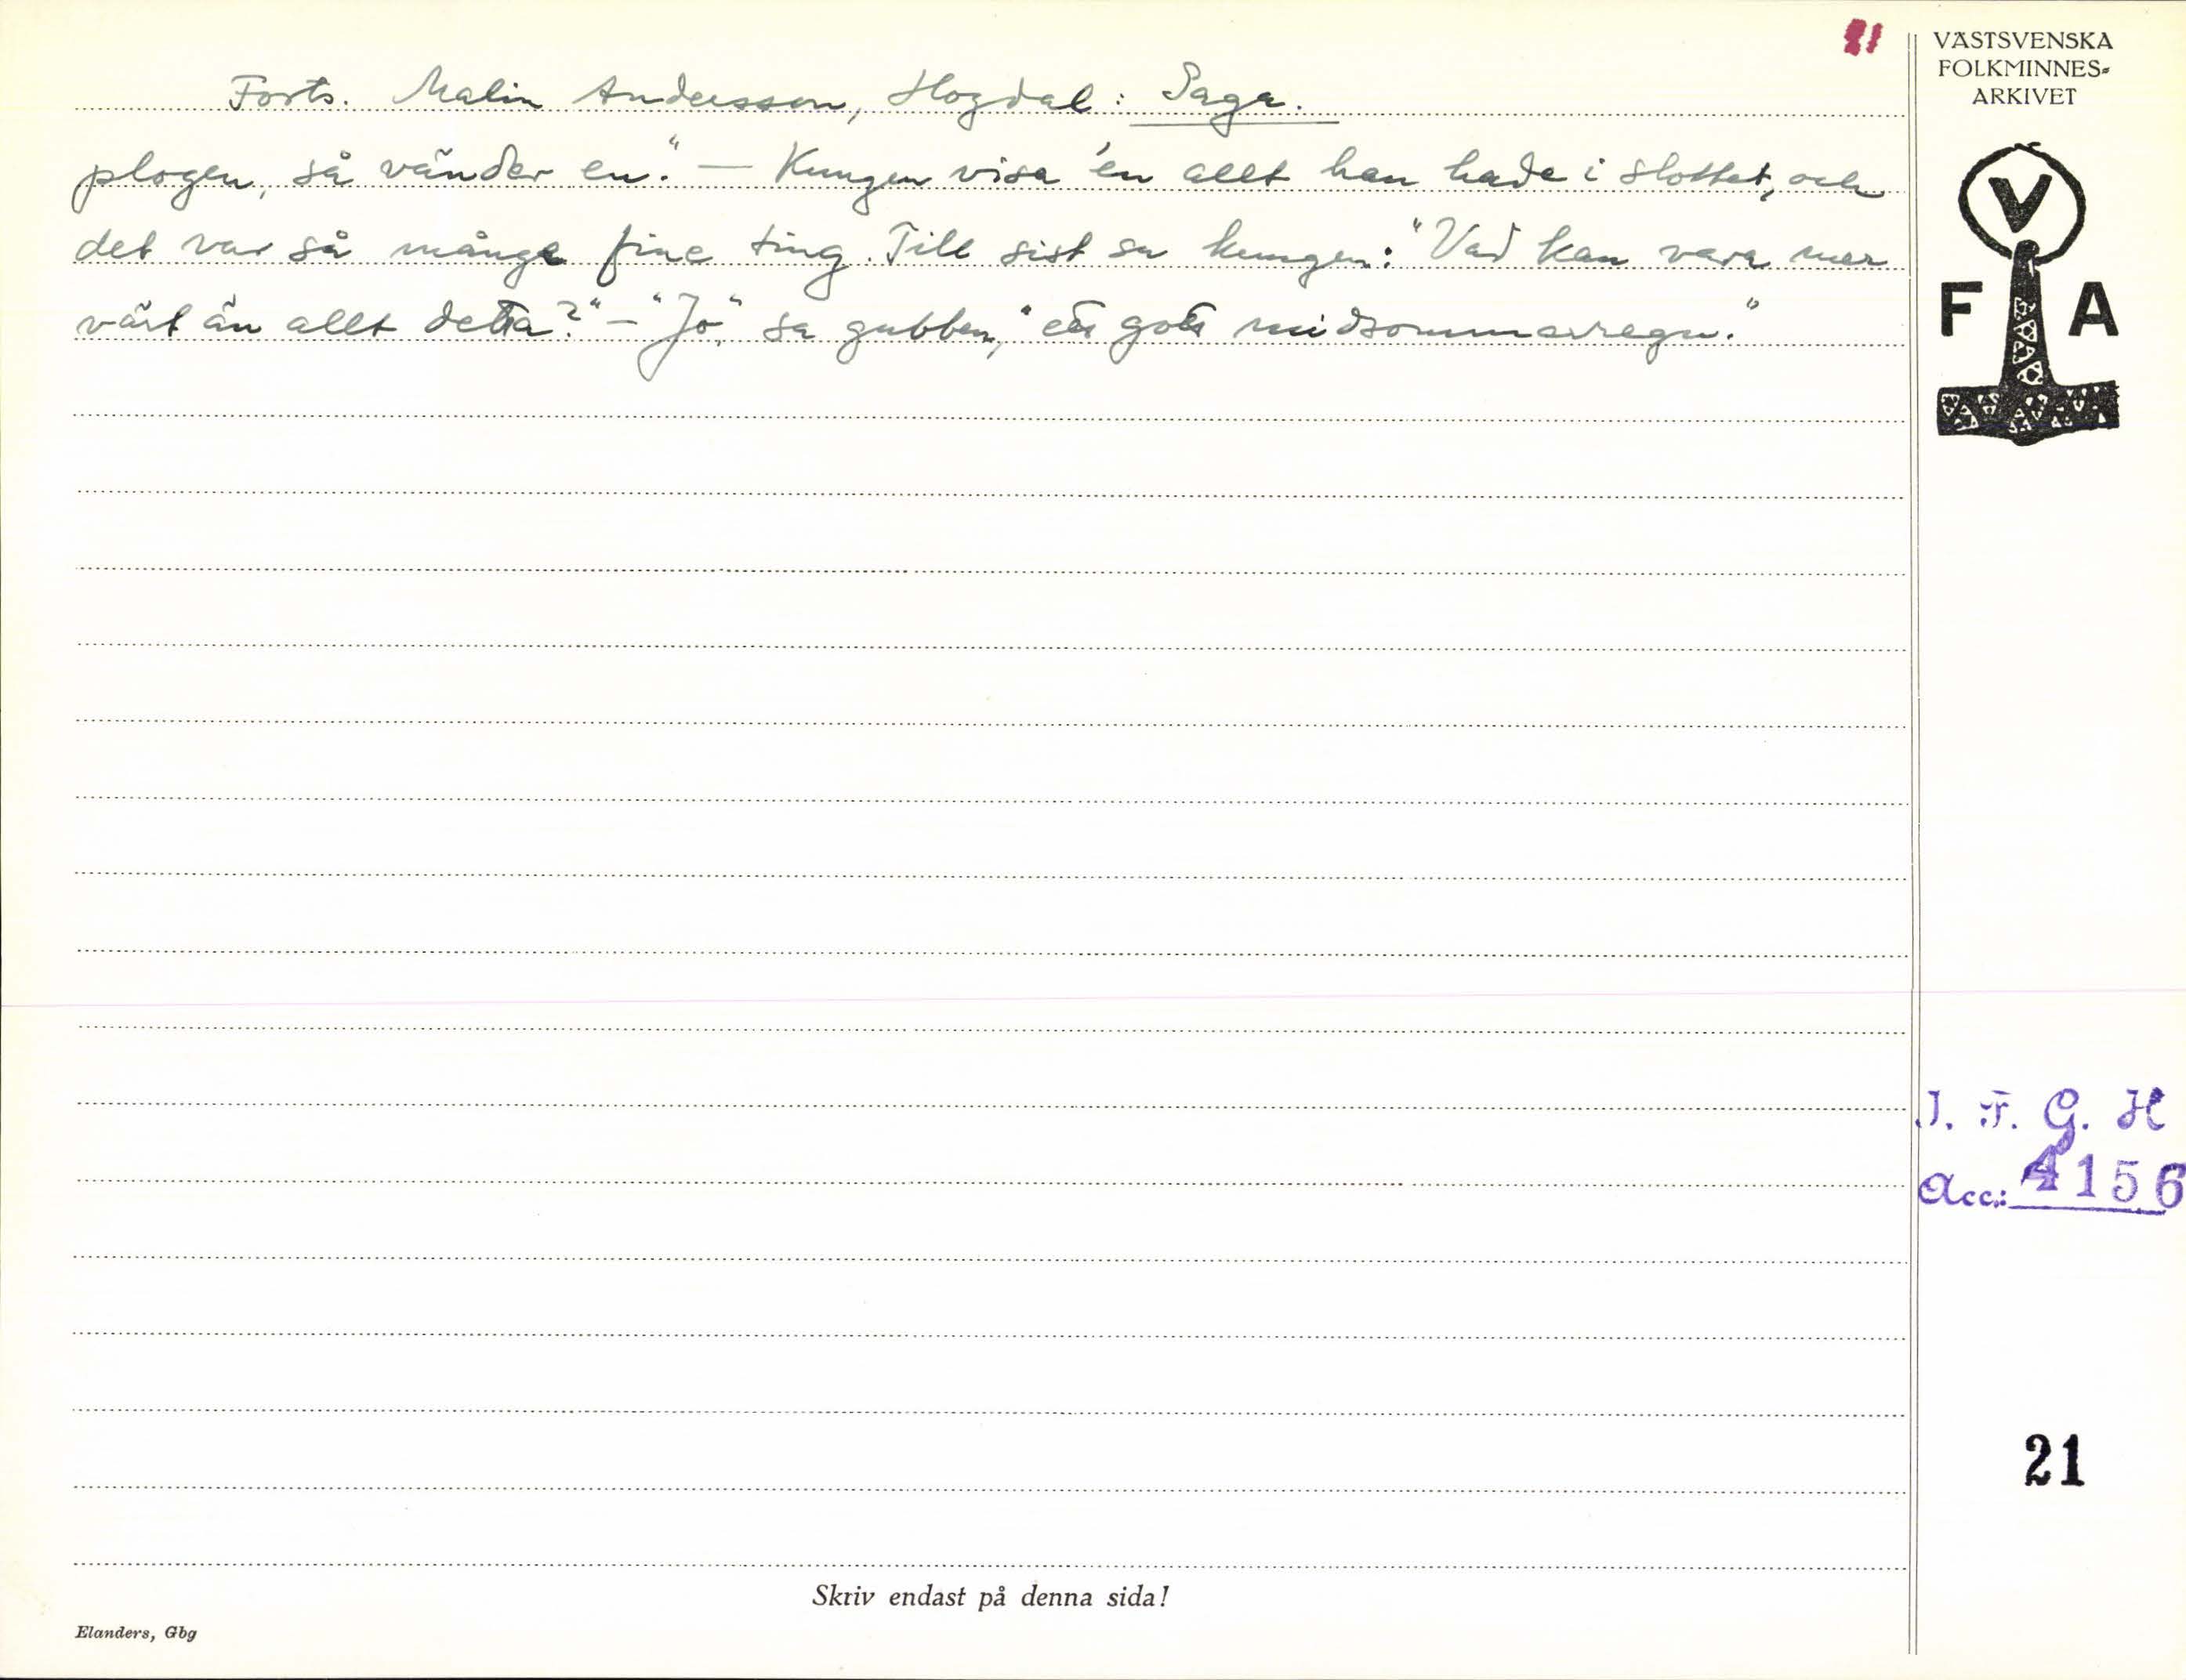 Forts. Malin Andersson, Hogdal: Saga.
plogen, så vänder en." — Kungen visa 'en allt han hade i slottet, och
det var så månge fine ting. Till sist sa kungen: "Vad kan vara mer
värt än allt detta?" - "Jo," sa gubben, "ett gott midsommarregn."
Skriv endast på denna sida!
Elanders, Gbg
VÄSTSVENSKA
FOLKMINNES-
ARKIVET
V
F A
I. F. G. H
Acc.: 4156
21